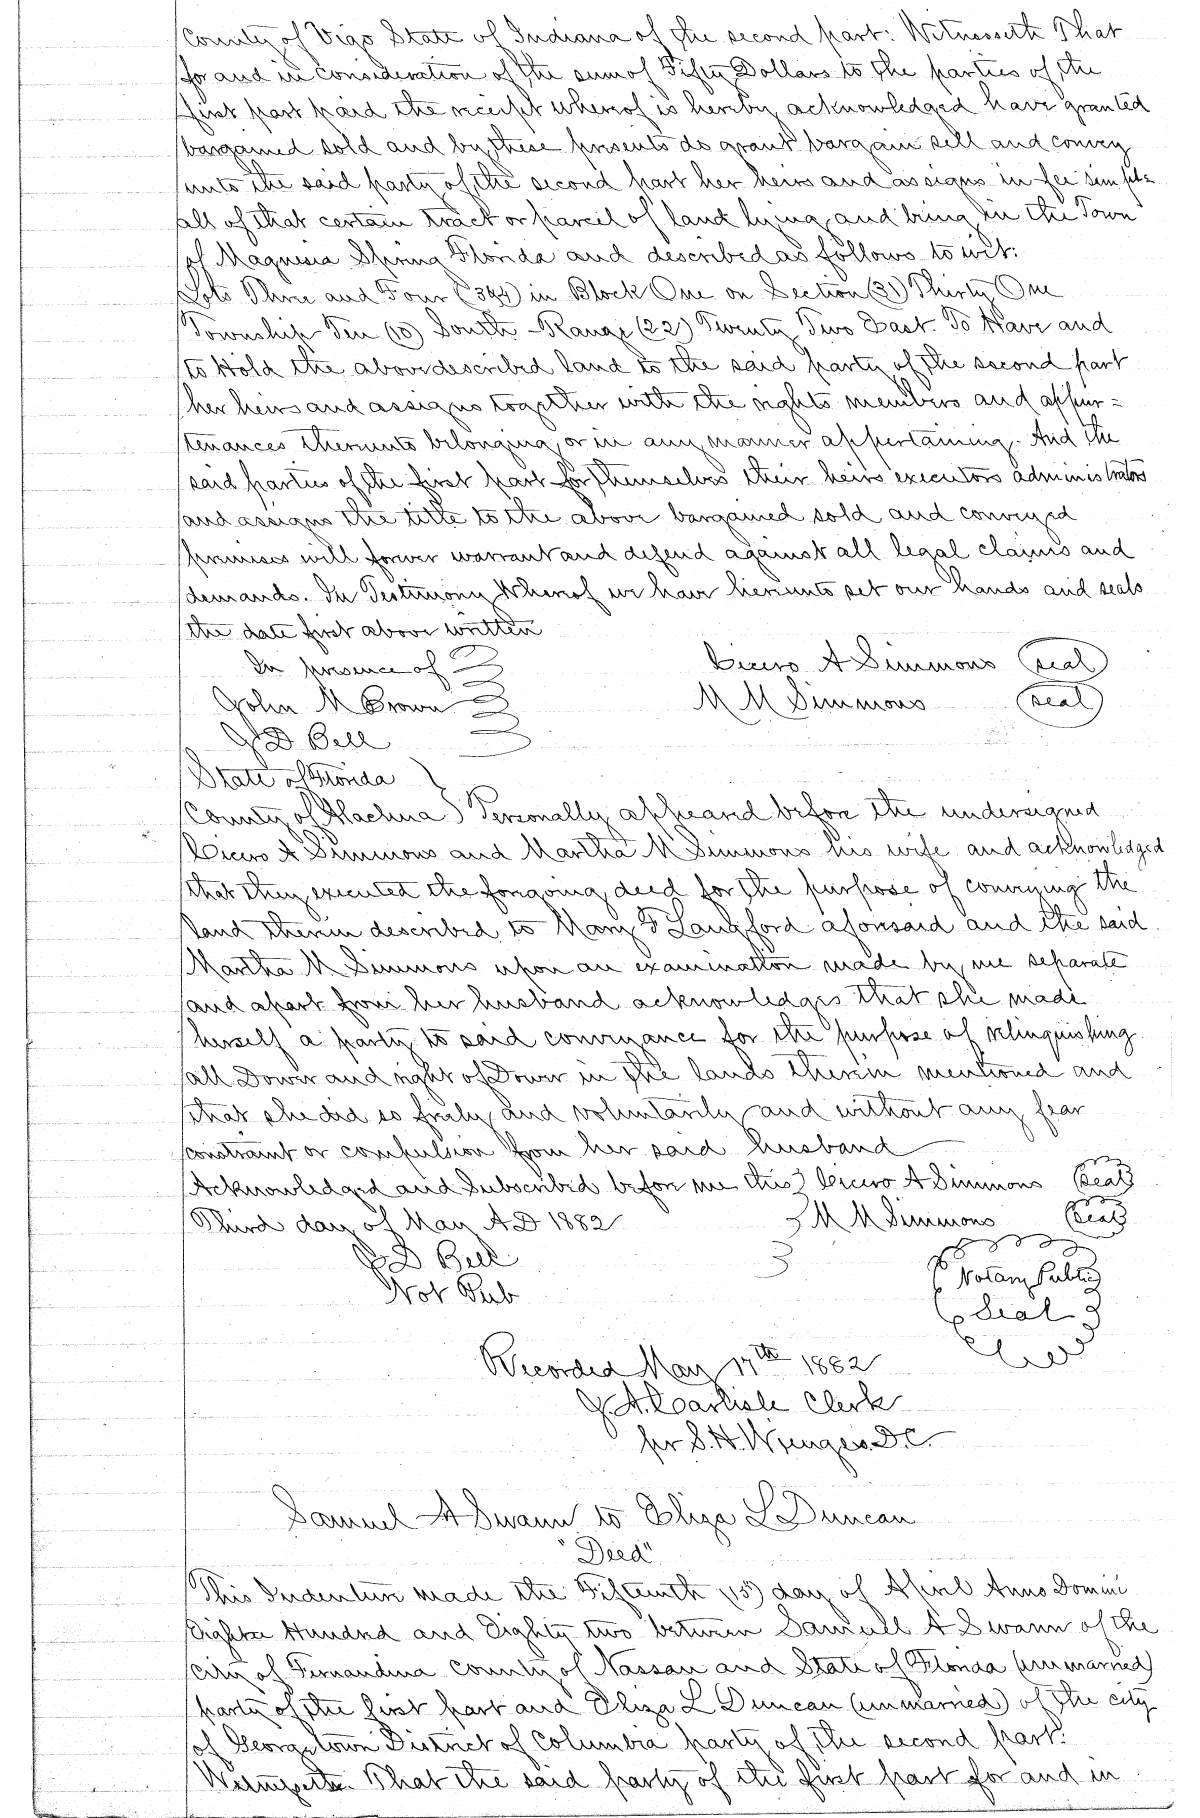 County of Vigo State of Indiana of the second part: Witnesseth That
for and in consideration of the sum of Fifty Dollars to the parties of the
first part paid the receipt whereof is hereby acknowledged have granted
bargained sold and by these presents do grant bargain sell and convey
unto the said party of the second part her heirs and assigns in fee simple
all of that certain tract or parcel of land lying and being in the Town
of Magnesia Spring Florida and described as follows to wit:
Lots Three and Four (3&4) in Block One on Section (31) Thirty One
Township Ten (10) South - Range (22) Twenty Two East. To Have and
to Hold the above described land to the said party of the second part
her heirs and assigns together with the rights members and appur=
tenances thereunto belonging or in any manner appertaining. And the
said parties of the first part for themselves their heirs executors administrators
and assigns the title to the above bargained sold and conveyed
premises will forever warrant and defend against all legal claims and
demands. In Testimony Whereof we have hereunto set our hands and seals
the date first above written
In presence of Cicero A Simmons (seal)
John M Brown M M Simmons (seal)
J D Bell
State of Florida
County of Alachua) Personally appeared before the undersigned
Cicero A Simmons and Martha M Simmons his wife and acknowledged
that they executed the foregoing deed for the purpose of conveying the
land therein described to Mary F Langford aforesaid and the said
Martha M Simmons upon an examination made by me separate
and apart from her husband acknowledges that she made
herself a party to said conveyance for the purpose of relinquishing
all Dower and right of Dower in the lands therein mentioned and
that she did so freely and voluntarily and without any fear
constraint or compulsion from her said husband
Acknowledged and Subscribed before me this Cicero A Simmons (Seal)
Third day of May A D 1882 M M Simmons (Seal)
J D Bell
Not Pub Notary Public
Seal
Recorded May 17th 1882
J. A. Carlisle Clerk
pr S. H. D.C.
Samuel A Swann to Eliza L Duncan
"Deed"
This Indenture made the Fifteenth (15) day of April Anno Domini
Hundred and Eighty two between Samuel A Swann of the
City of Fernandina County of Nassau and State of Florida (unmarried)
party of the first part and Eliza L Duncan (unmarried) of the city
of Georgetown District of Columbia party of the second part:
That the said party of the first part for and in